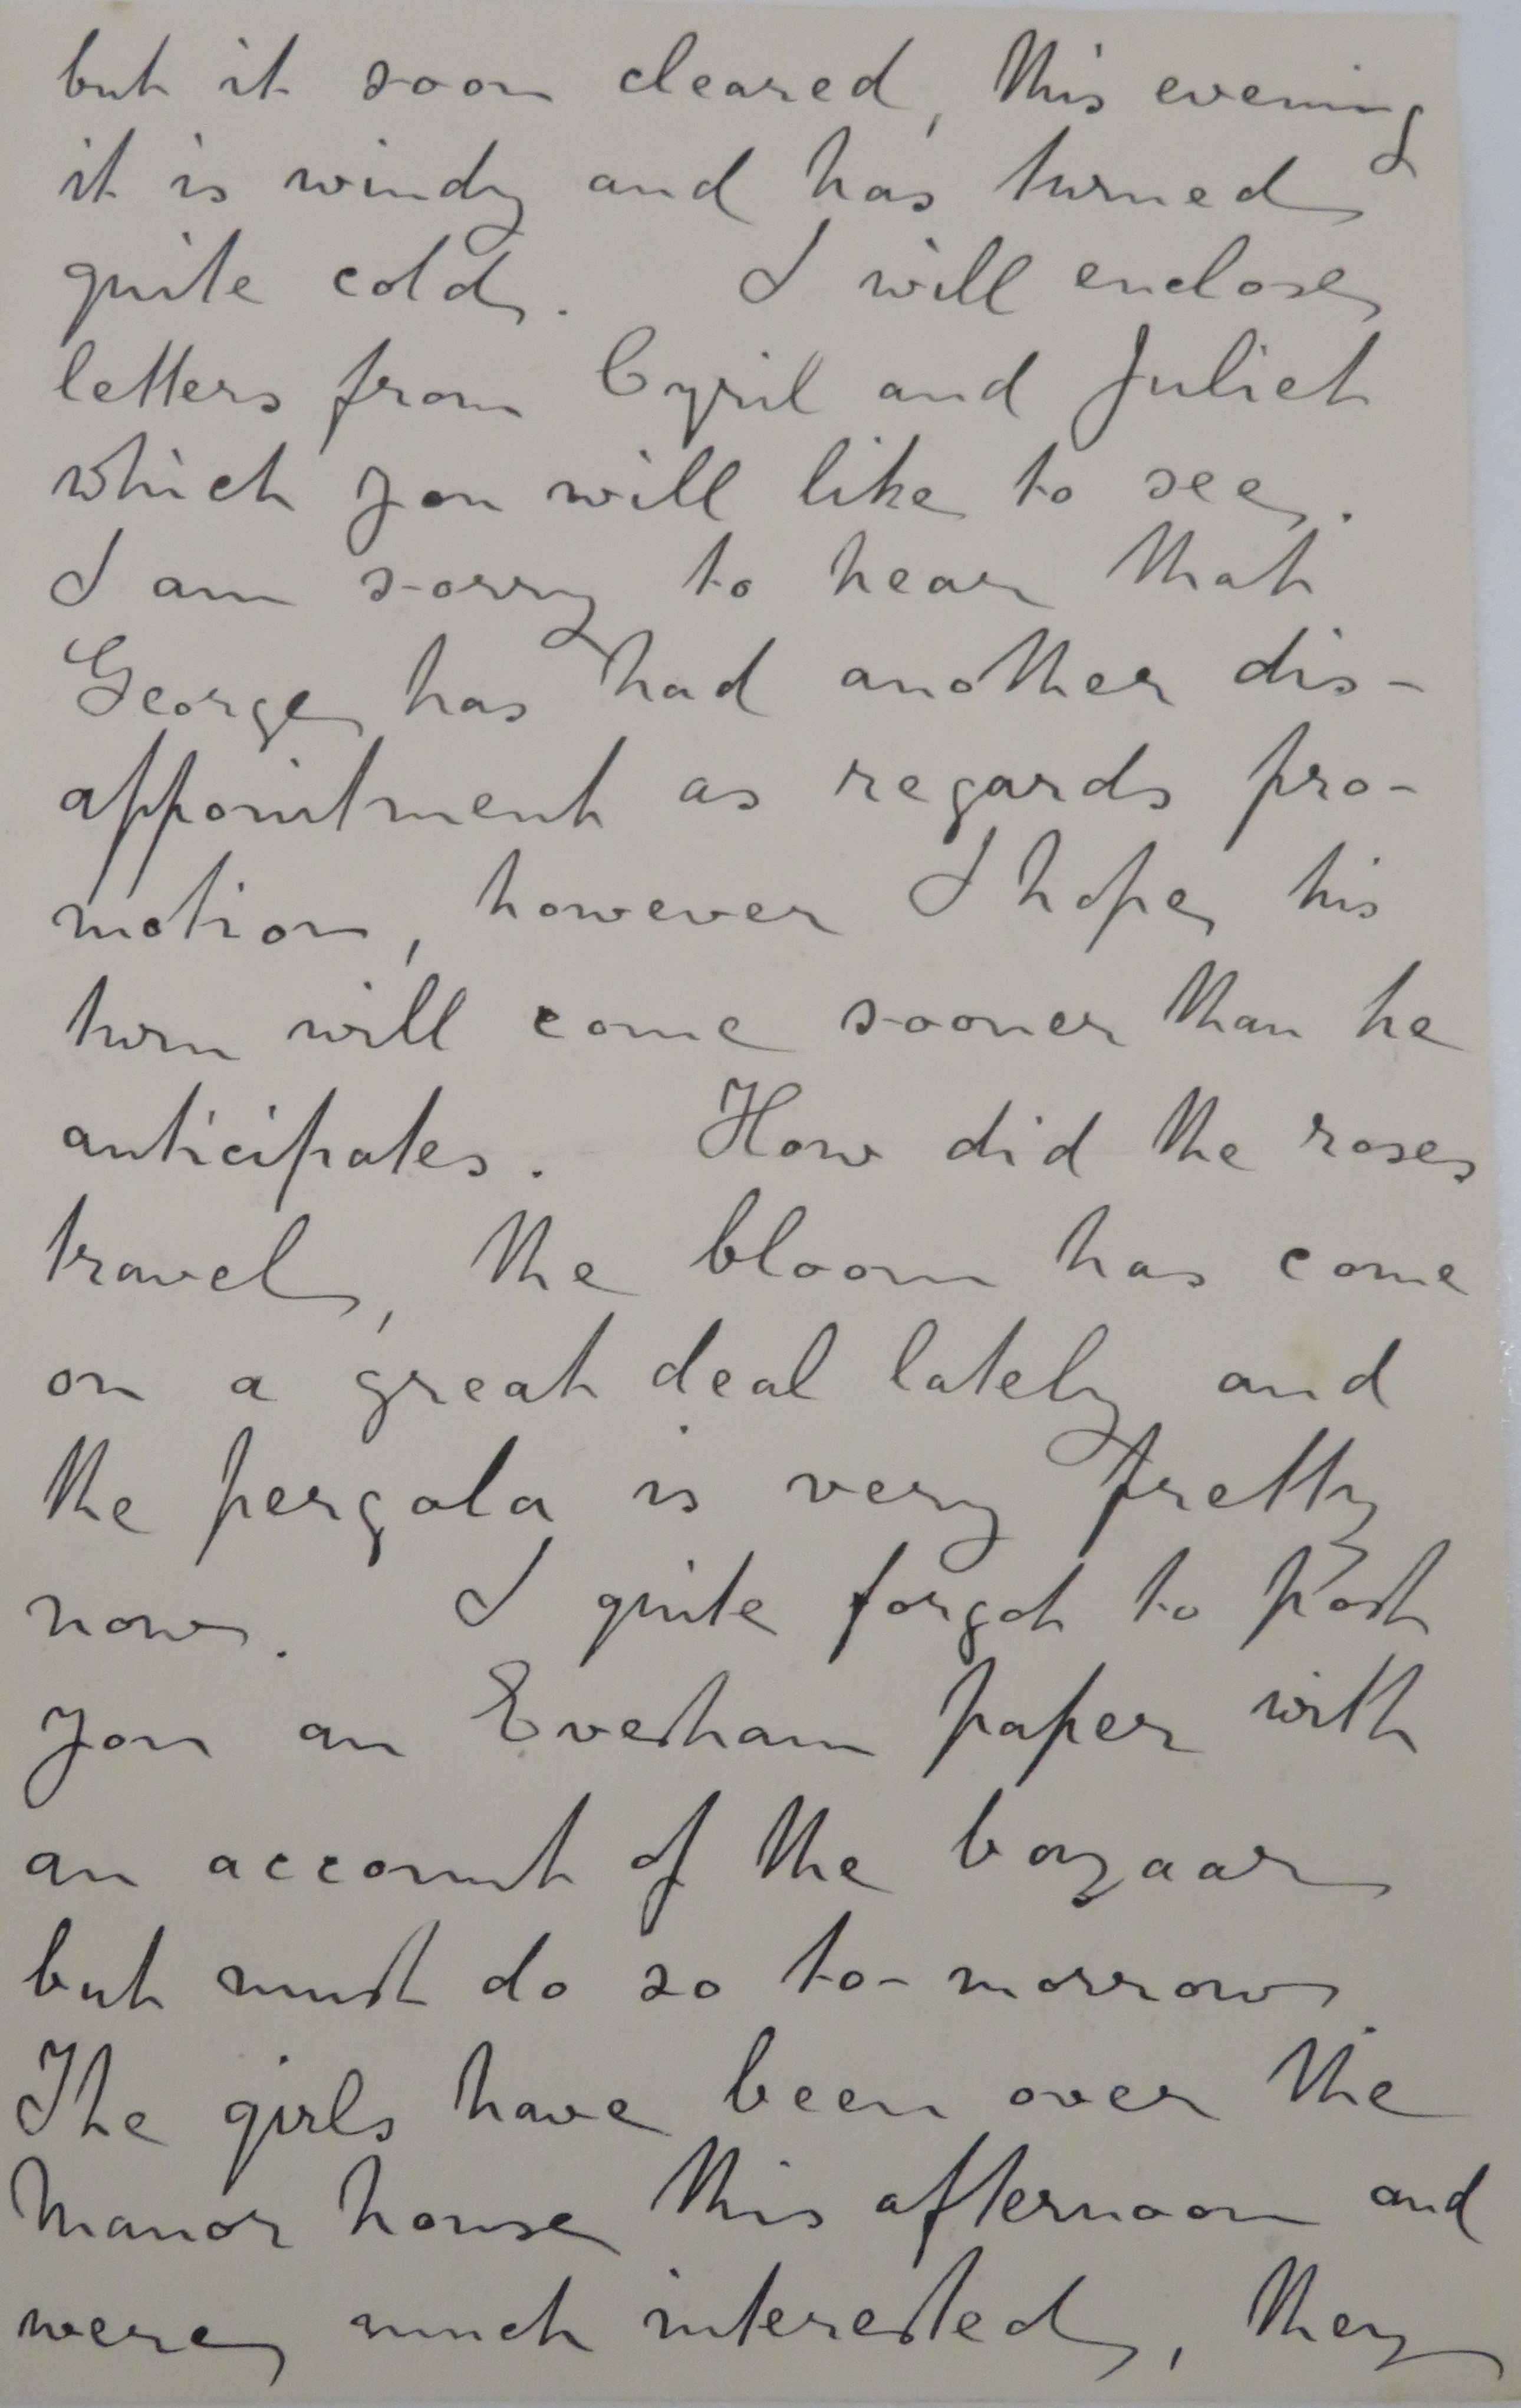 but it soon cleared, this evening
it is windy and has turned
quite cold. I will enclose
letters from Cyril and Juliet
which you will like to see.
I am sorry to hear that
George has had another dis-
appointment as regards pro-
motion, however I hope his
turn will come sooner than he
anticipates. How did the roses
travel, the bloom has come
on a great deal lately and
the pergola is very pretty
now. I quite forgot to post
you an Evesham paper with
an account of the bazaar
but must do so to-morrow.
The girls have been over the
Manor house this afternoon and
were much interested, they